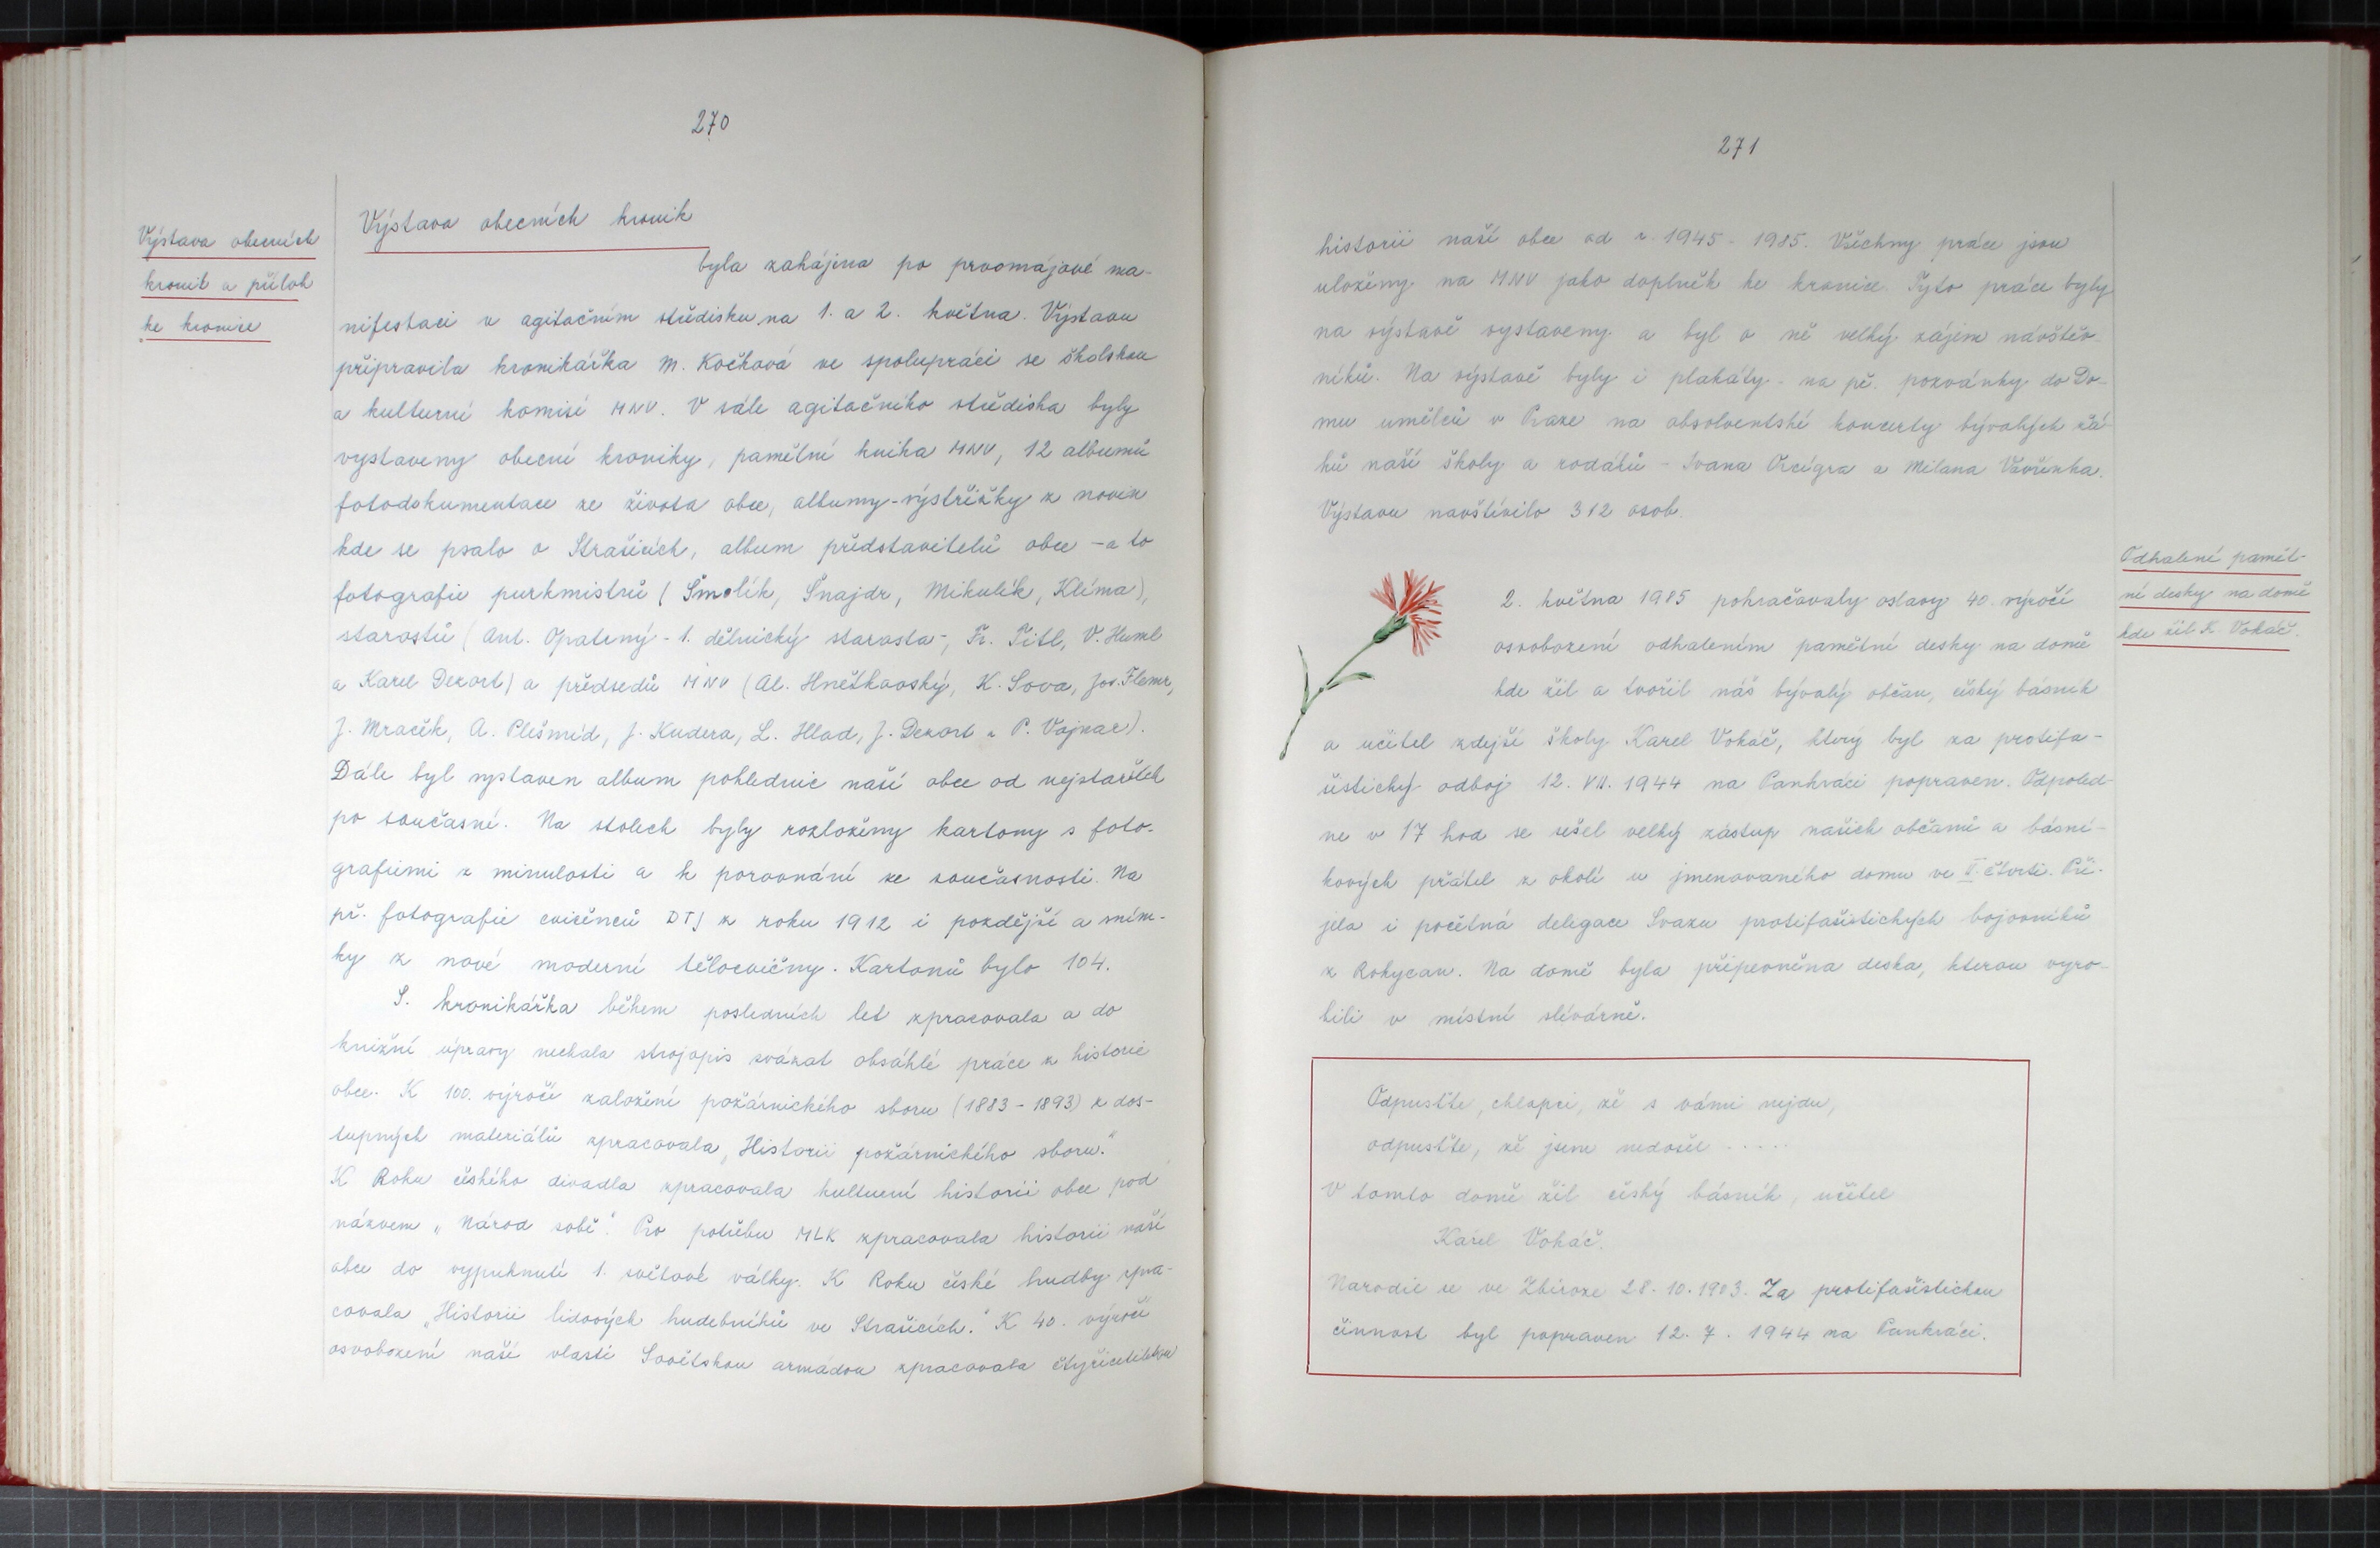 270
Výstava obecních
kronik a příloh
ke kronice
Výstava obecních kronik
byla zahájena po prvomájové ma-
nifestaci v agitačním středisku na 1. a 2. května. Výstavu
připravila kronikářka M. Kočková ve spolupráci se školskou
a kulturní komisí MNV. V sále agitačního střediska byly
vystaveny obecní kroniky, pamětní kniha MNV, 12 albumů
fotodokumentace ze života obce, albumy-výstřižky z novin
kde se psalo o Strašicích, album představitelů obce - a to
fotografie purkmistrů (Šmolík, Šnajdr, Mikulík, Klíma),
starostů (Ant. Opatrný - 1. dělnický starosta-, Fr. Titl, V. Huml
a Karel Dezort) a předsedů MNV (Al. Hněťkovský, K. Sova, Jos. Flemr,
J. Mraček, A. Plešmíd, J. Kudera, L. Hlad, J. Dezort a P. Vojnar).
Dále byl vystaven album pohlednic naší obce od nejstarších
po současné. Na stolech byly rozloženy kartony s foto-
grafiemi z minulosti a k porovnání ze současnosti. Na
př. fotografie cvičenců DTJ z roku 1912 i pozdější a sním-
ky z nové moderní tělocvičny. Kartonů bylo 104.
S. kronikářka během posledních let zpracovala a do
knižní úpravy nechala strojopis svázat obsáhlé práce z historie
obce. K 100. výročí založení požárnického sboru (1883 - 1893) z dos-
tupných materiálů zpracovala „Historii požárnického sboru."
K Roku českého divadla zpracovala kulturní historii obce pod
názvem „Národ sobě". Pro potřebu MLK zpracovala historii naší
obce do vypuknutí 1. světové války. K Roku české hudby zpra-
covala „Historii lidových hudebníků ve Strašicích." K 40. výročí
osvobození naší vlasti Sovětskou armádou zpracovala čtyřicetiletou
271
historii naší obce od r. 1945 - 1985. Všechny práce jsou
uloženy na MNV jako doplněk ke kronice. Tyto práce byly
na výstavě vystaveny a byl o ně velký zájem návštěv-
níků. Na výstavě byly i plakáty - na př. pozvánky do Do-
mu umělců v Praze na absolventské koncerty bývalých žá-
ků naší školy a rodáků - Ivana a Milana Vavřínka.
Výstavu navštívilo 312 osob.
Odhalení pamět-
ní desky na domě
kde žil K. Vokáč.
2. května 1985 pokračovaly oslavy 40. výročí
osvobození odhalením pamětní desky na domě
kde žil a tvořil náš bývalý občan, český básník
a učitel zdejší školy Karel Vokáč, který byl za protifa-
šistický odboj 12. VII. 1944 na Pankráci popraven. Odpoled-
ne v 17 hod se sešel velký zástup našich občanů a básní-
kových přátel z okolí u jmenovaného domu ve II. čtvrti. Při-
jela i početná delegace Svazu protifašistických bojovníků
z Rokycan. Na domě byla připevněna deska, kterou vyro-
bili v místní slévárně.
Odpusťte, chlapci, že s vámi nejdu,
odpusťte, že jsem nedošel .....
V tomto domě žil český básník, učitel
Karel Vokáč.
Narodil se ve Zbiroze 28. 10. 1903. Za protifašistickou
činnost byl popraven 12. 7. 1944 na Pankráci.